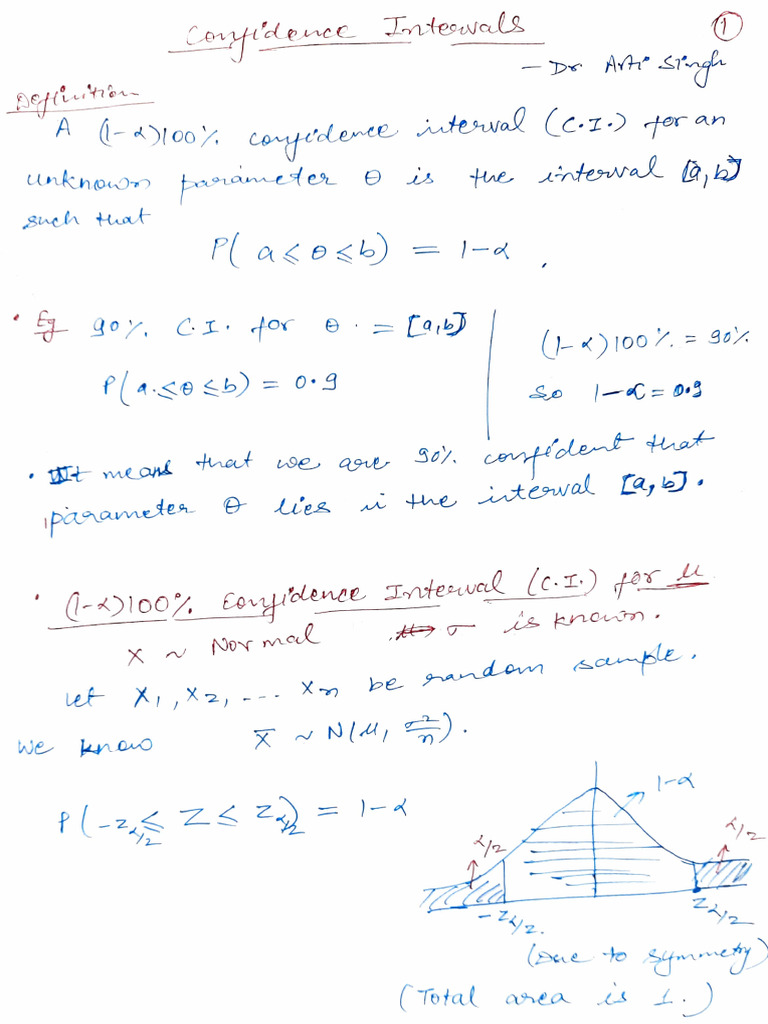 Confidence Intervals
①
- Dr Arti Singh
Definition
A (1-α)100% confidence interval (C.I.) for an
unknown parameter θ is the interval [a,b]
such that
P( a ≤ θ ≤ b) = 1-α .
• Eg 90% C.I. for θ. = [a,b]
P(a. ≤ θ ≤ b) = 0.9
(1-α)100% = 90%
So 1-α = 0.9
• It means that we are 90% confident that
parameter θ lies in the interval [a,b].
• (1-α)100% Confidence Interval (C.I.) for μ
X ~ Normal σ is known.
Let X₁, X₂, ... Xn be random sample.
We know X̄ ~ N(μ, σ²/n).
P(-Z_α/2 ≤ Z ≤ Z_α/2) = 1-α
1-α
α/2
α/2
-Z_α/2.
Z_α/2
(Due to symmetry)
(Total area is 1.)